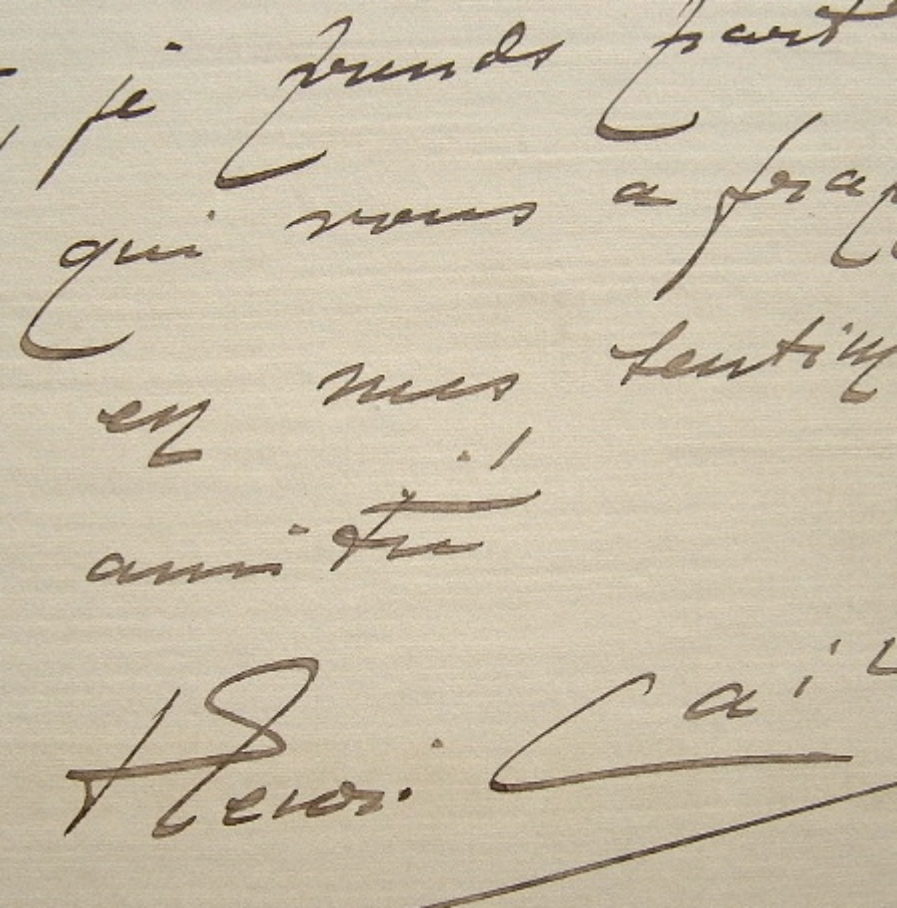 , je prends part
qui vous a frap
en mes sentim
amitié
Henri Cai